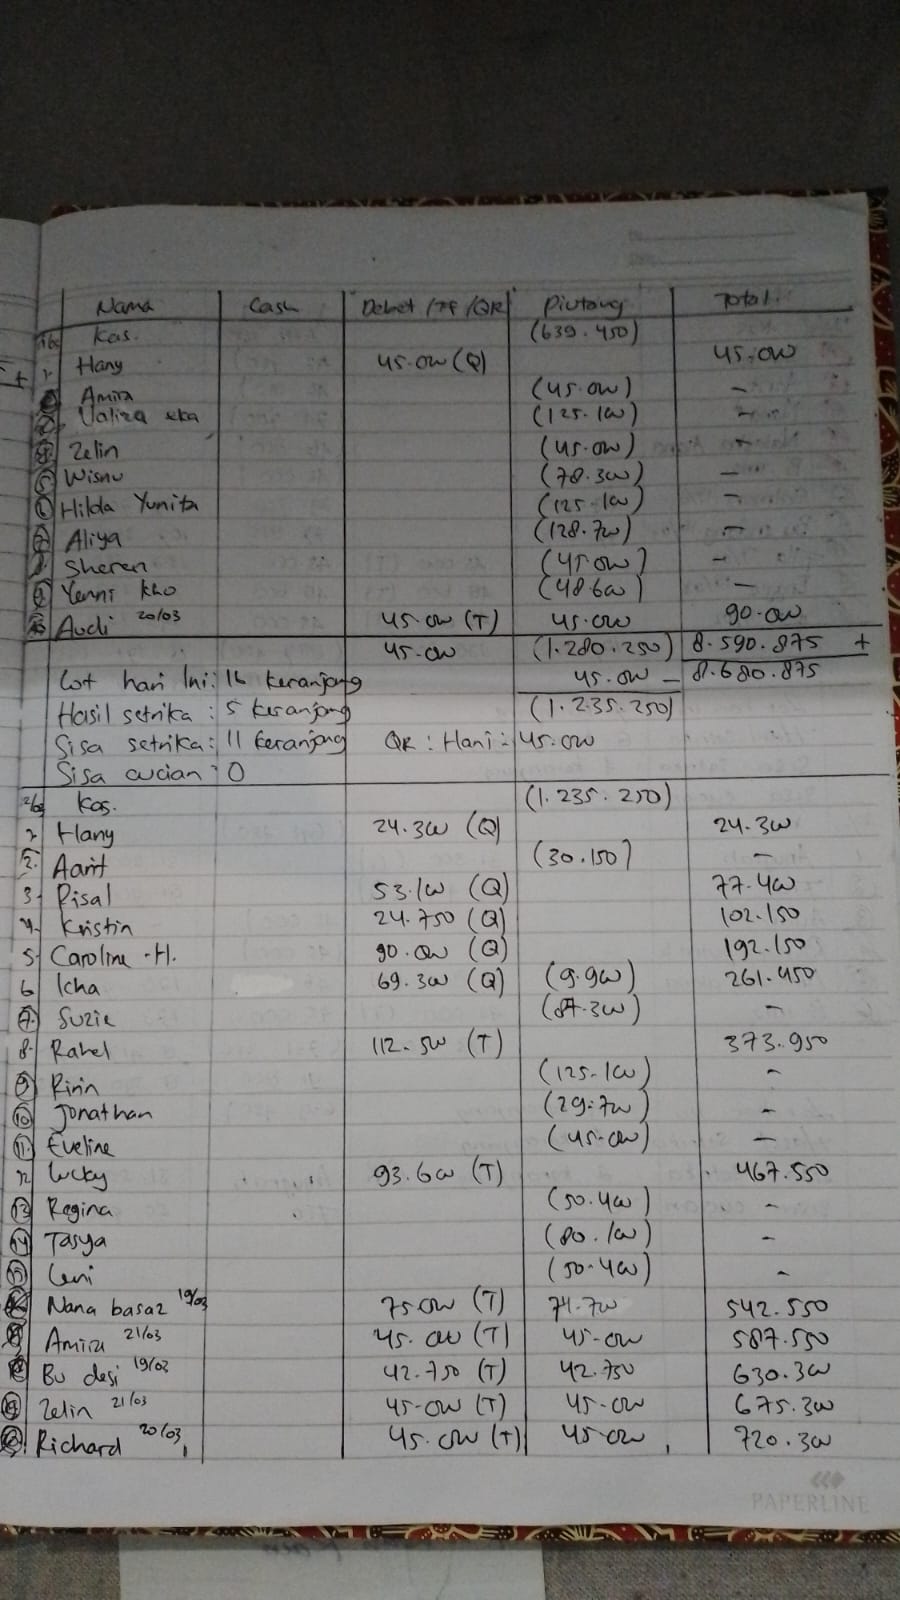 Nama Cash Debet / TF / QR Piutang Total
Kas. (639.450)
Hany 45.000 (Q) 45.000
Amira (45.000) -
Valiza eka (125.100) -
Zelin (45.000) -
5 Wisnu (78.300) -
6 Hilda Yunita (125.100) -
7 Aliya (128.700) -
8 Sheren (45.000) -
9 Yenni kho (48.600) -
Audi 20/03 45.000 (T) 45.000 90.000
45.000 (1.280.250) 8.590.875 +
Cot hari Ini: 16 keranjang 45.000 - 8.680.875
Hasil setrika : 5 keranjang (1.235.250)
Sisa setrika : 11 keranjang QR : Hani : 45.000
Sisa cucian : 0
Kas. (1.235.250)
Hany 24.300 (Q) 24.300
2. Aarit (30.150) -
3. Risal 53.100 (Q) 77.400
4. Kristin 24.750 (Q) 102.150
5. Caroline .H. 90.000 (Q) 192.150
6 Icha 69.300 (Q) (9.900) 261.450
7. Suzie (87.300) -
8. Rahel 112.500 (T) 373.950
9 Ririn (125.100) -
10 Jonathan (29.700) -
11. Eveline (45.000) -
12 Lucky 93.600 (T) 467.550
13 Regina (50.400) -
14 Tasya (80.100) -
15 Leni (50.400) -
Nana basaz 19/03 75000 (T) 74.700 542.550
Amira 21/03 45.000 (T) 45.000 587.550
Bu desi 19/03 42.750 (T) 42.750 630.300
19 Zelin 21/03 45.000 (T) 45.000 675.300
Richard 20/03 45.000 (T) 45.000 720.300
PAPERLINE